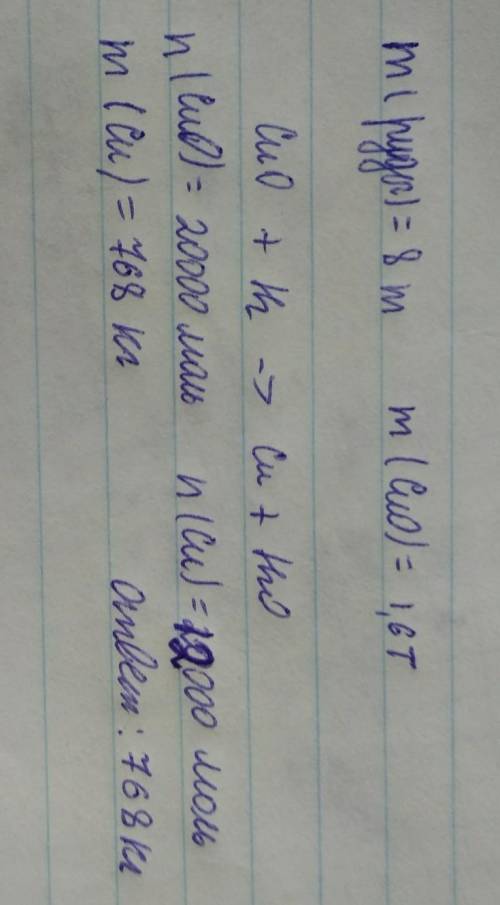 m (руда) = 8 т m (CuO) = 1,6 т
CuO + H2 -> Cu + H2O
n (CuO) = 20000 моль n (Cu) = 12000 моль
m (Cu) = 768 кг Ответ: 768 кг